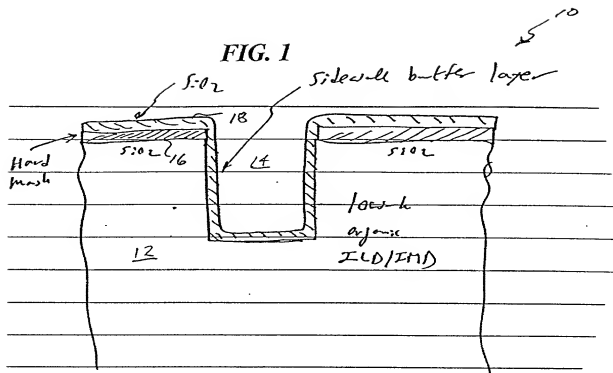 10
FIG. 1
SiO2
Sidewall buffer layer
18
Hard
mask
SiO2
16
14
SiO2
low-k
organic
ILD/IMD
12